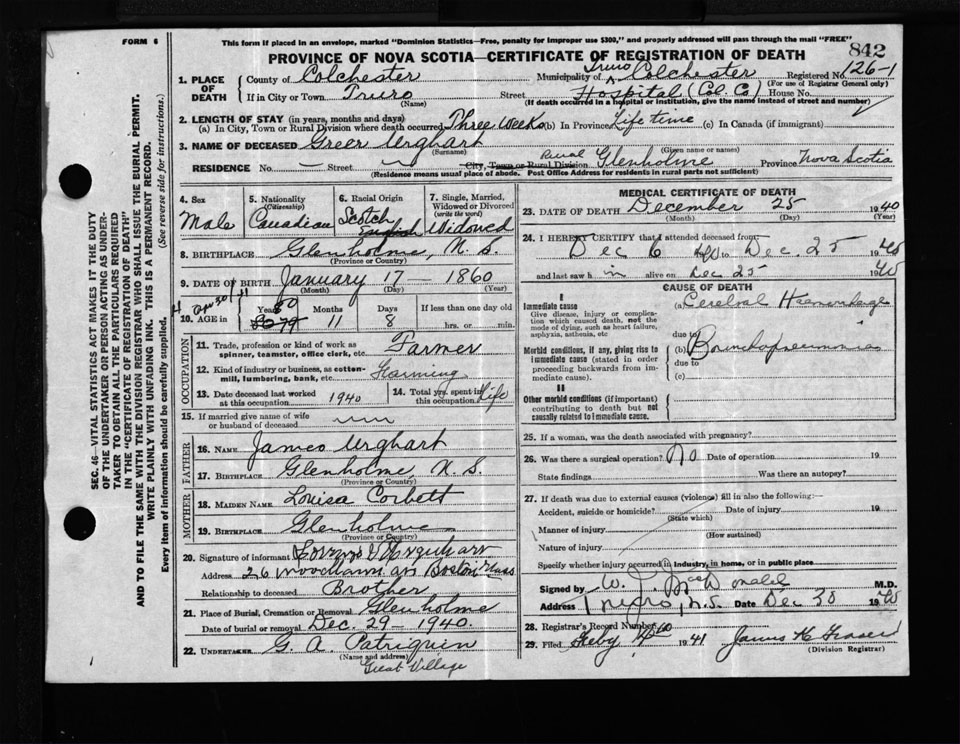 FORM 6
This form if placed in an envelope, marked "Dominion Statistics—Free, penalty for improper use $300," and properly addressed will pass through the mail "FREE"
842
PROVINCE OF NOVA SCOTIA—CERTIFICATE OF REGISTRATION OF DEATH
1. PLACE OF DEATH
County of Colchester Municipality of Truro Colchester Registered No. 126-1
(For use of Registrar General only)
If in City or Town Truro Street Hospital (Col. Co.) House No.
(Name) (If death occurred in a hospital or institution, give the name instead of street and number)
2. LENGTH OF STAY (in years, months and days)
(a) In City, Town or Rural Division where death occurred Three Weeks (b) In Province Life time (c) In Canada (if immigrant)
3. NAME OF DECEASED Greer Urghart
(Surname) (Given name or names)
RESIDENCE No. Street City, Town or Rural Division Rural Glenholme Province Nova Scotia
(Residence means usual place of abode. Post Office Address for residents in rural parts not sufficient)
4. Sex
Male
5. Nationality
(Citizenship)
Canadian
6. Racial Origin
Scotch
English
7. Single, Married, Widowed or Divorced
(write the word)
Widowed
8. BIRTHPLACE Glenholme, N. S.
(Province or Country)
9. DATE OF BIRTH January 17 1860
(Month) (Day) (Year)
10. AGE in
Years
80 79
Months
11
Days
8
If less than one day old
hrs. or min.
OCCUPATION
11. Trade, profession or kind of work as spinner, teamster, office clerk, etc. Farmer
12. Kind of industry or business, as cotton-mill, lumbering, bank, etc. Farming
13. Date deceased last worked at this occupation 1940
14. Total yrs. spent in this occupation life
15. If married give name of wife or husband of deceased
FATHER
16. NAME James Urghart
17. BIRTHPLACE Glenholme, N. S.
(Province or Country)
MOTHER
18. MAIDEN NAME Louisa Corbett
19. BIRTHPLACE Glenholme
(Province or Country)
20. Signature of informant Urquhart
Address 26 Boston Mass
Relationship to deceased Brother
21. Place of Burial, Cremation or Removal Glenholme
Date of burial or removal Dec. 29 - 1940.
22. UNDERTAKER G. A. Patriquin
(Name and address)
Great Village
MEDICAL CERTIFICATE OF DEATH
23. DATE OF DEATH December 25 1940
(Month) (Day) (Year)
24. I HEREBY CERTIFY that I attended deceased from
Dec 6 40 to Dec 25 1940
and last saw h im alive on Dec 25 1940
CAUSE OF DEATH
I
Immediate cause
Give disease, injury or complication which caused death, not the mode of dying, such as heart failure, asphyxia, asthenia, etc
(a) Cerebral Haemorrhage
due to
Morbid conditions, if any, giving rise to immediate cause (stated in order proceeding backwards from immediate cause).
(b) Bronchopneumonia
due to
(c)
II
Other morbid conditions (if important) contributing to death but not causally related to immediate cause.
25. If a woman, was the death associated with pregnancy?
26. Was there a surgical operation? No Date of operation 19
State findings Was there an autopsy?
27. If death was due to external causes (violence) fill in also the following:—
Accident, suicide or homicide? Date of injury 19
(State which)
Manner of injury
(How sustained)
Nature of injury
Specify whether injury occurred in industry, in home, or in public place
Signed by W. MacDonald M.D.
Address Truro, N.S. Date Dec 30 1940
28. Registrar's Record Number
29. Filed Feby 1941 James K Fraser
(Division Registrar)
SEC. 46—VITAL STATISTICS ACT MAKES IT THE DUTY
OF THE UNDERTAKER OR PERSON ACTING AS UNDERTAKER
TO OBTAIN ALL THE PARTICULARS REQUIRED
IN THE "CERTIFICATE OF REGISTRATION OF DEATH"
AND TO FILE THE SAME WITH THE DIVISION REGISTRAR WHO SHALL ISSUE THE BURIAL PERMIT.
WRITE PLAINLY WITH UNFADING INK. THIS IS A PERMANENT RECORD.
Every item of information should be carefully supplied. (See reverse side for instructions.)